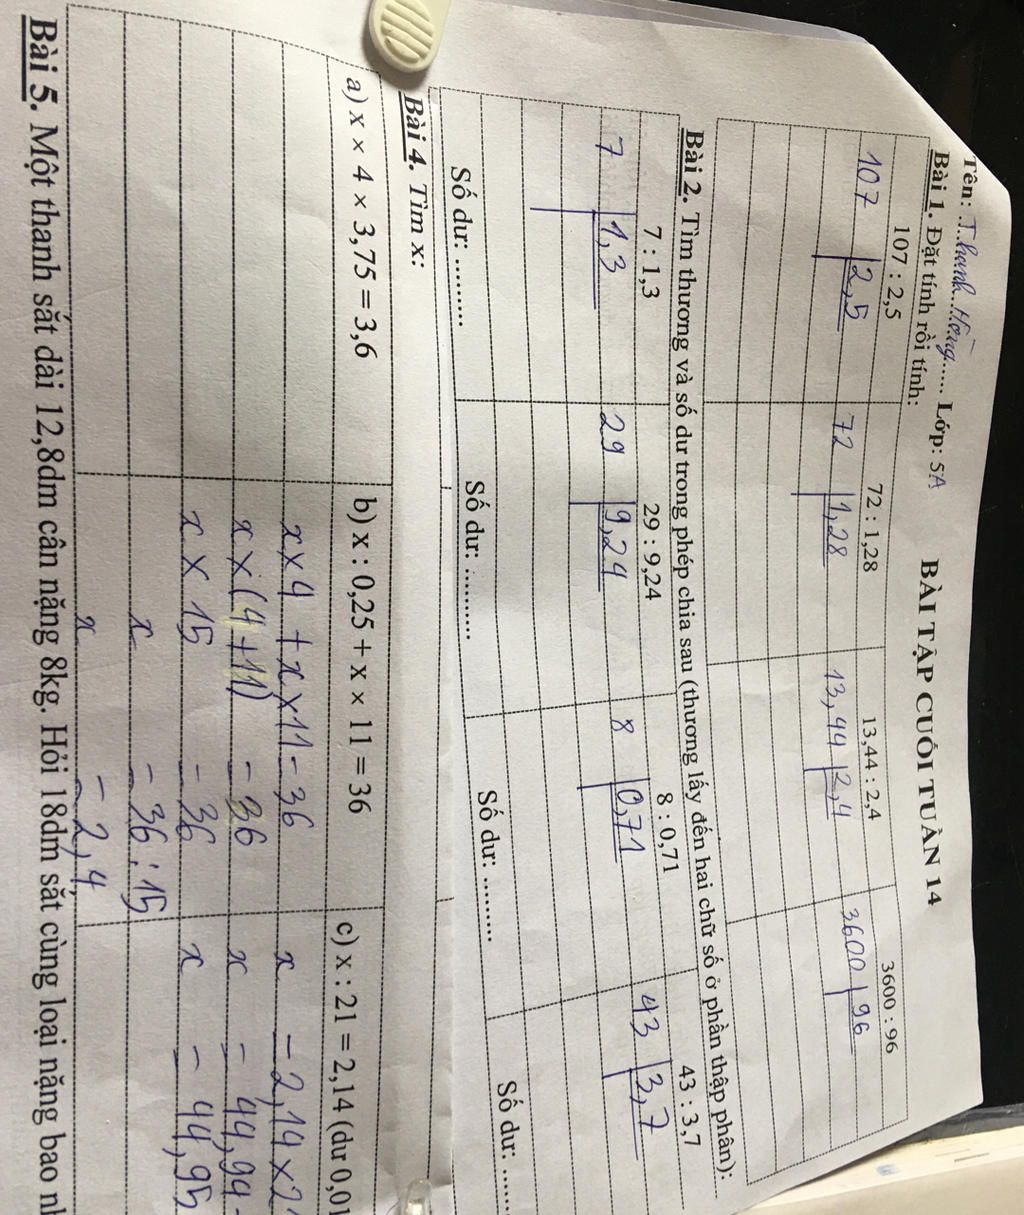 BÀI TẬP CUỐI TUẦN 14
Tên: Thanh Hồng...... Lớp: 5A
Bài 1. Đặt tính rồi tính:
107 : 2,5 72 : 1,28 13,44 : 2,4 3600 : 96
107 2,5 72 1,28 13,44 2,4 3600 96
Bài 2. Tìm thương và số dư trong phép chia sau (thương lấy đến hai chữ số ở phần thập phân):
7 : 1,3 29 : 9,24 8 : 0,71 43 : 3,7
7 1,3 29 9,24 8 0,71 43 3,7
Số dư: .......... Số dư: .......... Số dư: .......... Số dư: ......
Bài 4. Tìm x:
a) x × 4 × 3,75 = 3,6 b) x : 0,25 + x × 11 = 36 c) x : 21 = 2,14 (dư 0,01
x × 4 + x × 11 = 36 x = 2,14 × 2
x × (4 + 11) = 36 x = 44,94
x × 15 = 36 x = 44,95
x = 36 : 15
x = 2,4
Bài 5. Một thanh sắt dài 12,8dm cân nặng 8kg. Hỏi 18dm sắt cùng loại nặng bao